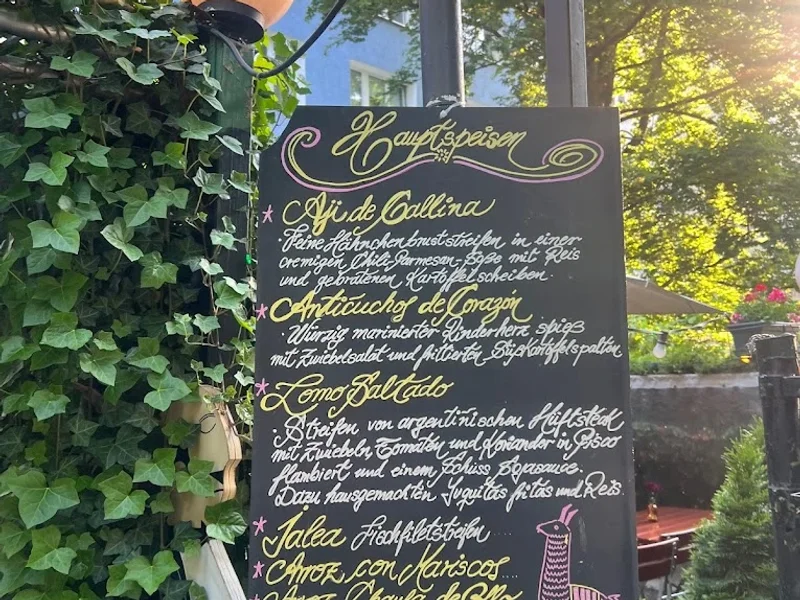 Hauptspeisen
Aji de Gallina
Feine Hähnchenbruststreifen in einer
cremigen Chili-Parmesan-Soße mit Reis
und gebratenen Kartoffelscheiben.
Anticuchos de Corazón
Würzig marinierter Rinderherz spieß
mit Zwiebelsalat und fritierten Süßkartoffelspalten
Lomo Saltado
Streifen von argentinischen Hüftsteck
mit Zwiebeln, Tomaten und Koriander in Pisco
flambiert und einem Schuss Sojasauce.
Dazu hausgemachten Yuquitas fritas und Reis.
Jalea Fischfiletstreifen
Arroz con Mariscos
Arroz Chaufa de